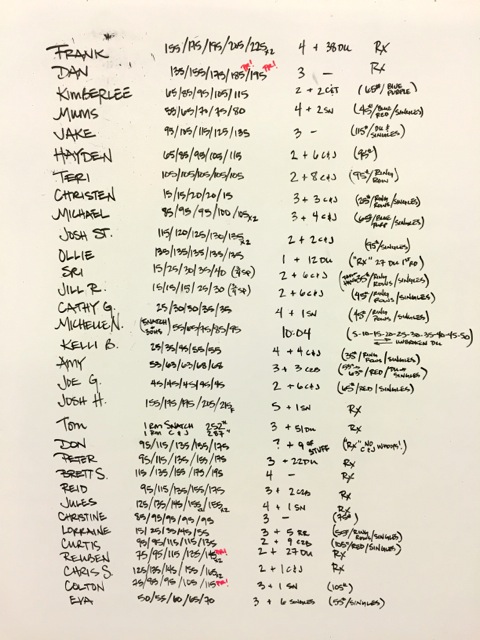 FRANK 155/175/195/205/225x2 4 + 38 DU RX
DAN 135/155/175/185/195 PR! PR! 3 — RX
KIMBERLEE 65/85/95/105/115 2 + 2 C&J (65#/BLUE PURPLE)
MUMS 55/65/70/75/80 4 + 2 SN (45#/BLUE RED/SINGLES)
JAKE 95/105/115/125/135 3 – (115#/DU & SINGLES)
HAYDEN 65/85/95/105/115 2 + 6 C&J (95#)
TERI 105/105/105/105/105 2 + 8 C&J (95#/RING ROW)
CHRISTEN 15/15/20/20/15 3 + 3 C&J (25#/RING ROWS/SINGLES)
MICHAEL 85/95/95/100/105x2 3 + 4 C&J (65#/BLUE PURP/SINGLES)
JOSH ST. 115/120/125/130/135x2 2 + 2 C&J (95#/SINGLES)
OLLIE 135/135/135/135/135 1 + 12 DU ("RX" 27 DU 1st RD)
SRI 15/25/30/35/40 2 + 6 C&J 35#/RING ROWS/SINGLES)
JILL R. 15/15/15/25/30 2 + 6 C&J (45#/RING ROWS/SINGLES)
CATHY G. 25/30/30/35/35 4 + 1 SN (45#/RING ROWS/SINGLES)
MICHELLE N. (SNATCH 55/65/75/85/95 10:04 (5-10-15-20-25-30-35-40-45-50) UNBROKEN DU
KELLI B. 25/35/45/55/55 4 + 4 C&J (35#/RING ROWS/SINGLES)
AMY 53/63/63/68/68 3 + 3 65#/RED/DU + SINGLES)
JOE G. 45/45/45/45/45 2 + 6 C&J (65#/RED/SINGLES)
JOSH H. 155/175/195/205/215 5 + 1 SN RX
TOM 1 RM SNATCH 252# 3 + 51 DU RX
1 RM C&J 287#
DON 95/115/135/155/175 ? + 9 OF STUFF ("RX", NO C&J WHOOPS!)
PETER 95/115/135/155/175 3 + 22 DU RX
BRETT S. 115/135/155/175/195 4 – RX
REID 95/115/135/155/175 3 + 2 RX
JULES 125/135/145/155/155x2 4 + 1 SN RX
CHRISTINE 85/95/95/95/95 3 – (75#)
LORRAINE 15/25/35/45/55 3 + 5 RR (55#/RING ROWS/SINGLES)
CURTIS 95/95/115/115/135 2 + 9 (105#/RED/SINGLES)
REUBEN 75/95/115/125/145x2 PR! 2 + 27 DU RX
CHRIS S. 125/135/145/155/165x2 2 + 1 C&J RX
COLTON 75/85/95/105/115 PR! 3 + 1 SN (105#)
EVA 50/55/60/65/70 3 + 6 SINGLES (55#/SINGLES)